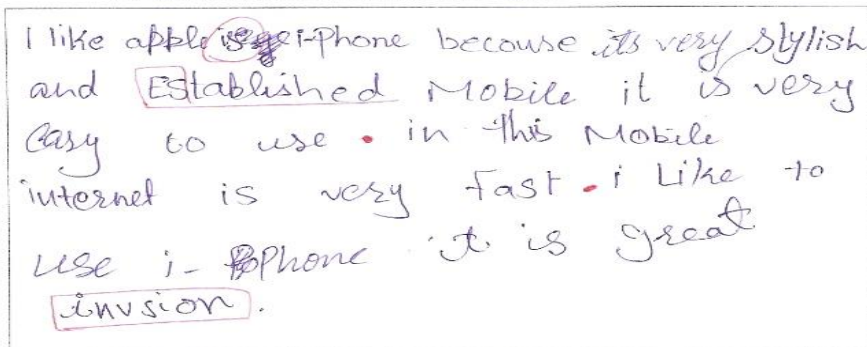 I like apple i-Phone becouse its very stylish
and Established Mobile it is very
Easy to use . in this Mobile
internet is very fast . i Like to
use i- Phone it is great
invsion .